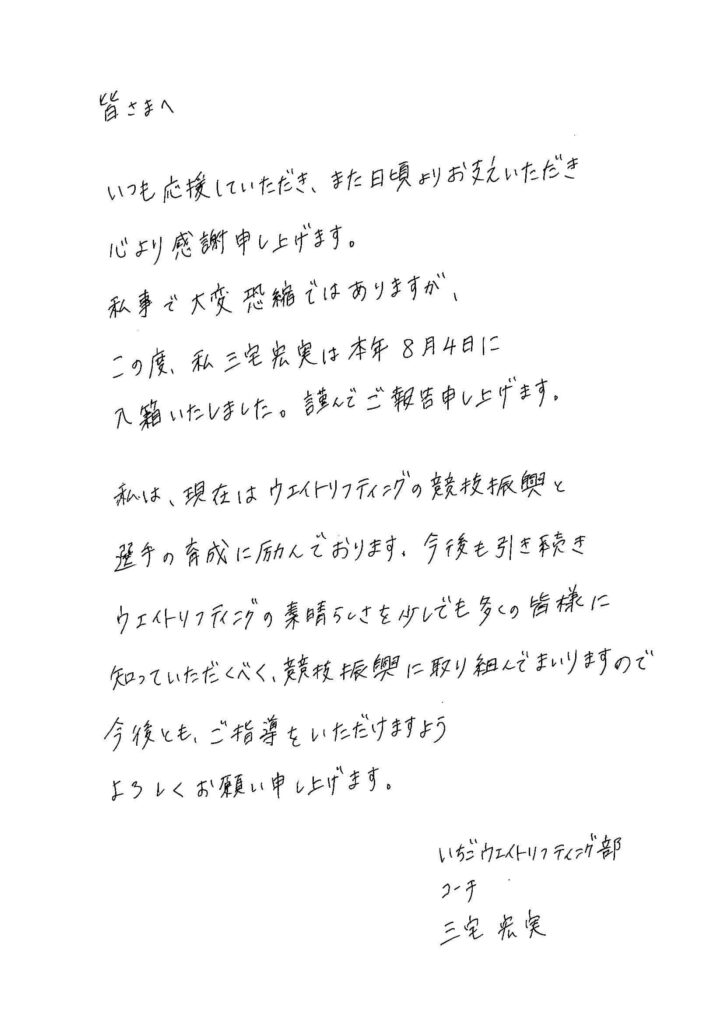 皆さまへ
いつも応援していただき、また日頃よりお支えいただき
心より感謝申し上げます。
私事で大変恐縮ではありますが、
この度、私 三宅宏実は本年 8月4日に
入籍いたしました。謹んでご報告申し上げます。
私は、現在はウエイトリフティングの競技振興と
選手の育成に励んでおります。今後も引き続き
ウエイトリフティングの素晴らしさを少しでも多くの皆様に
知っていただくべく、競技振興に取り組んでまいりますので
今後とも、ご指導をいただけますよう
よろしくお願い申し上げます。
いちごウエイトリフティング部
コーチ
三宅 宏実